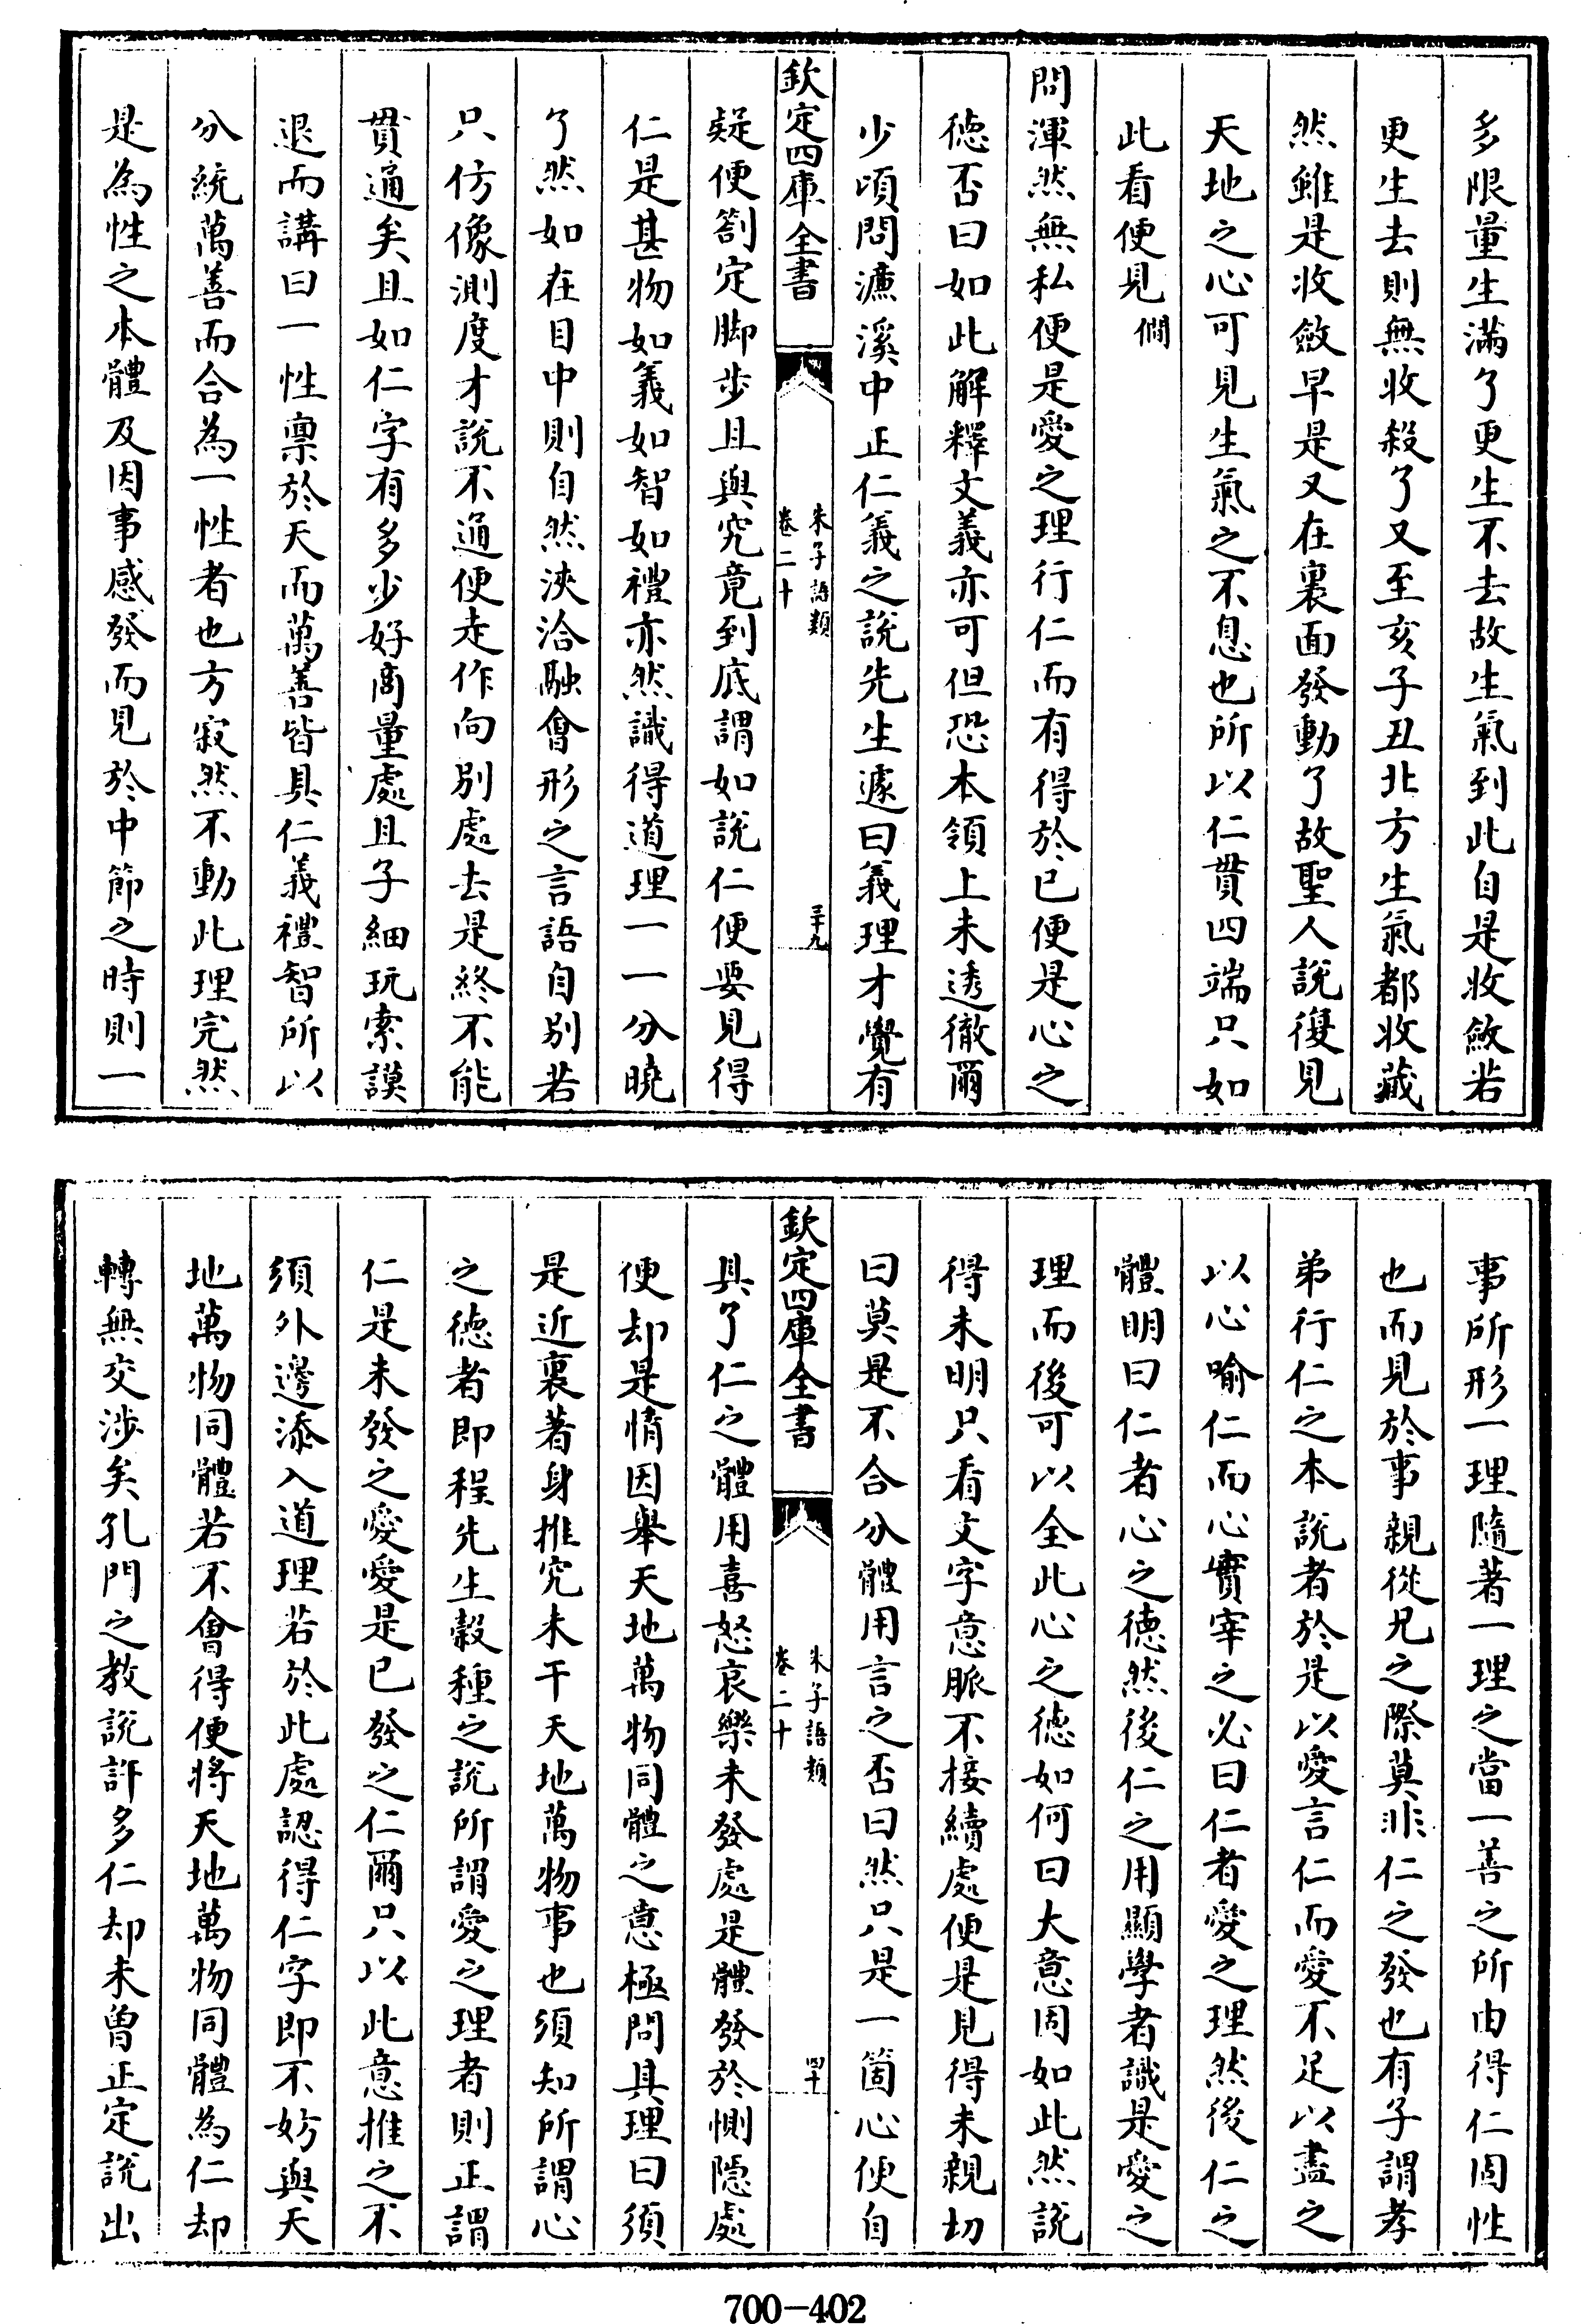 多限量生滿了更生不去故生氣到此自是收斂若
更生去則無收殺了又至亥子丑北方生氣都收藏
然雖是收斂早是又在裏面發動了故聖人說復見
天地之心可見生氣之不息也所以仁貫四端只如
此看便見僴
問渾然無私便是愛之理行仁而有得於已便是心之
德否曰如此解釋文義亦可但恐本領上未透徹爾
少頃問濂溪中正仁義之說先生遽曰義理才覺有
欽定四庫全書
朱子語類
卷二十
三十九
疑便劄定脚步且與究竟到底謂如說仁便要見得
仁是甚物如義如智如禮亦然識得道理一一分曉
了然如在目中則自然浹洽融會形之言語自别若
只仿像測度才說不通便走作向别處去是終不能
貫通矣且如仁字有多少好商量處且子細玩索謨
退而講曰一性禀於天而萬善皆具仁義禮智所以
分統萬善而合為一性者也方寂然不動此理完然
是為性之本體及因事感發而見於中節之時則一
事所形一理隨著一理之當一善之所由得仁固性
也而見於事親從兄之際莫非仁之發也有子謂孝
弟行仁之本說者於是以愛言仁而愛不足以盡之
以心喻仁而心實宰之必曰仁者愛之理然後仁之
體明曰仁者心之德然後仁之用顯學者識是愛之
理而後可以全此心之德如何曰大意固如此然說
得未明只看文字意脈不接續處便是見得未親切
曰莫是不合分體用言之否曰然只是一箇心便自
欽定四庫全書
朱子語類
卷二十
四十
具了仁之體用喜怒哀樂未發處是體發於惻隱處
便却是情因舉天地萬物同體之意極問其理曰須
是近裏著身推究未干天地萬物事也須知所謂心
之德者即程先生穀種之說所謂愛之理者則正謂
仁是未發之愛愛是已發之仁爾只以此意推之不
須外邊添入道理若於此處認得仁字即不妨與天
地萬物同體若不會得便將天地萬物同體為仁却
轉無交涉矣孔門之教說許多仁却未曾正定說出
700-402